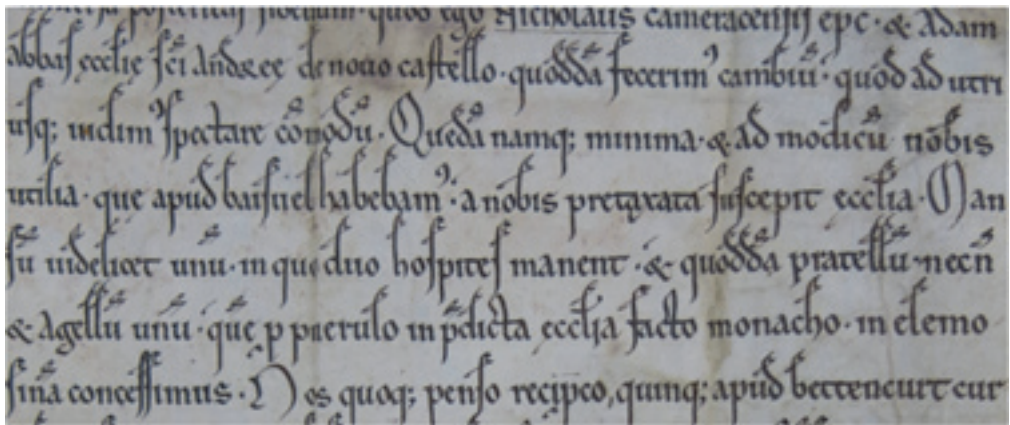 fidelium · quod ego Nicholaus cameracensis epc · & Adam
abbas ecclie sci andree de nouo castello · quodda fecerim' cambiu · quod ad utri
usq; indim' spectare comodu · Queda namq; minima · & ad modicu nobis
utilia · que apud baisuiel habebam' · a nobis pretaxata suscepit ecclia · Man
su uidelicet unu · in quo duo hospites manent · & quodda pratellu · necn
& agellu unu · que p puerulo in pdicta ecclia facto monacho · in elemo
sina concessimus · Nos quoq; penso recipco, quinq; apud bettencurt cur